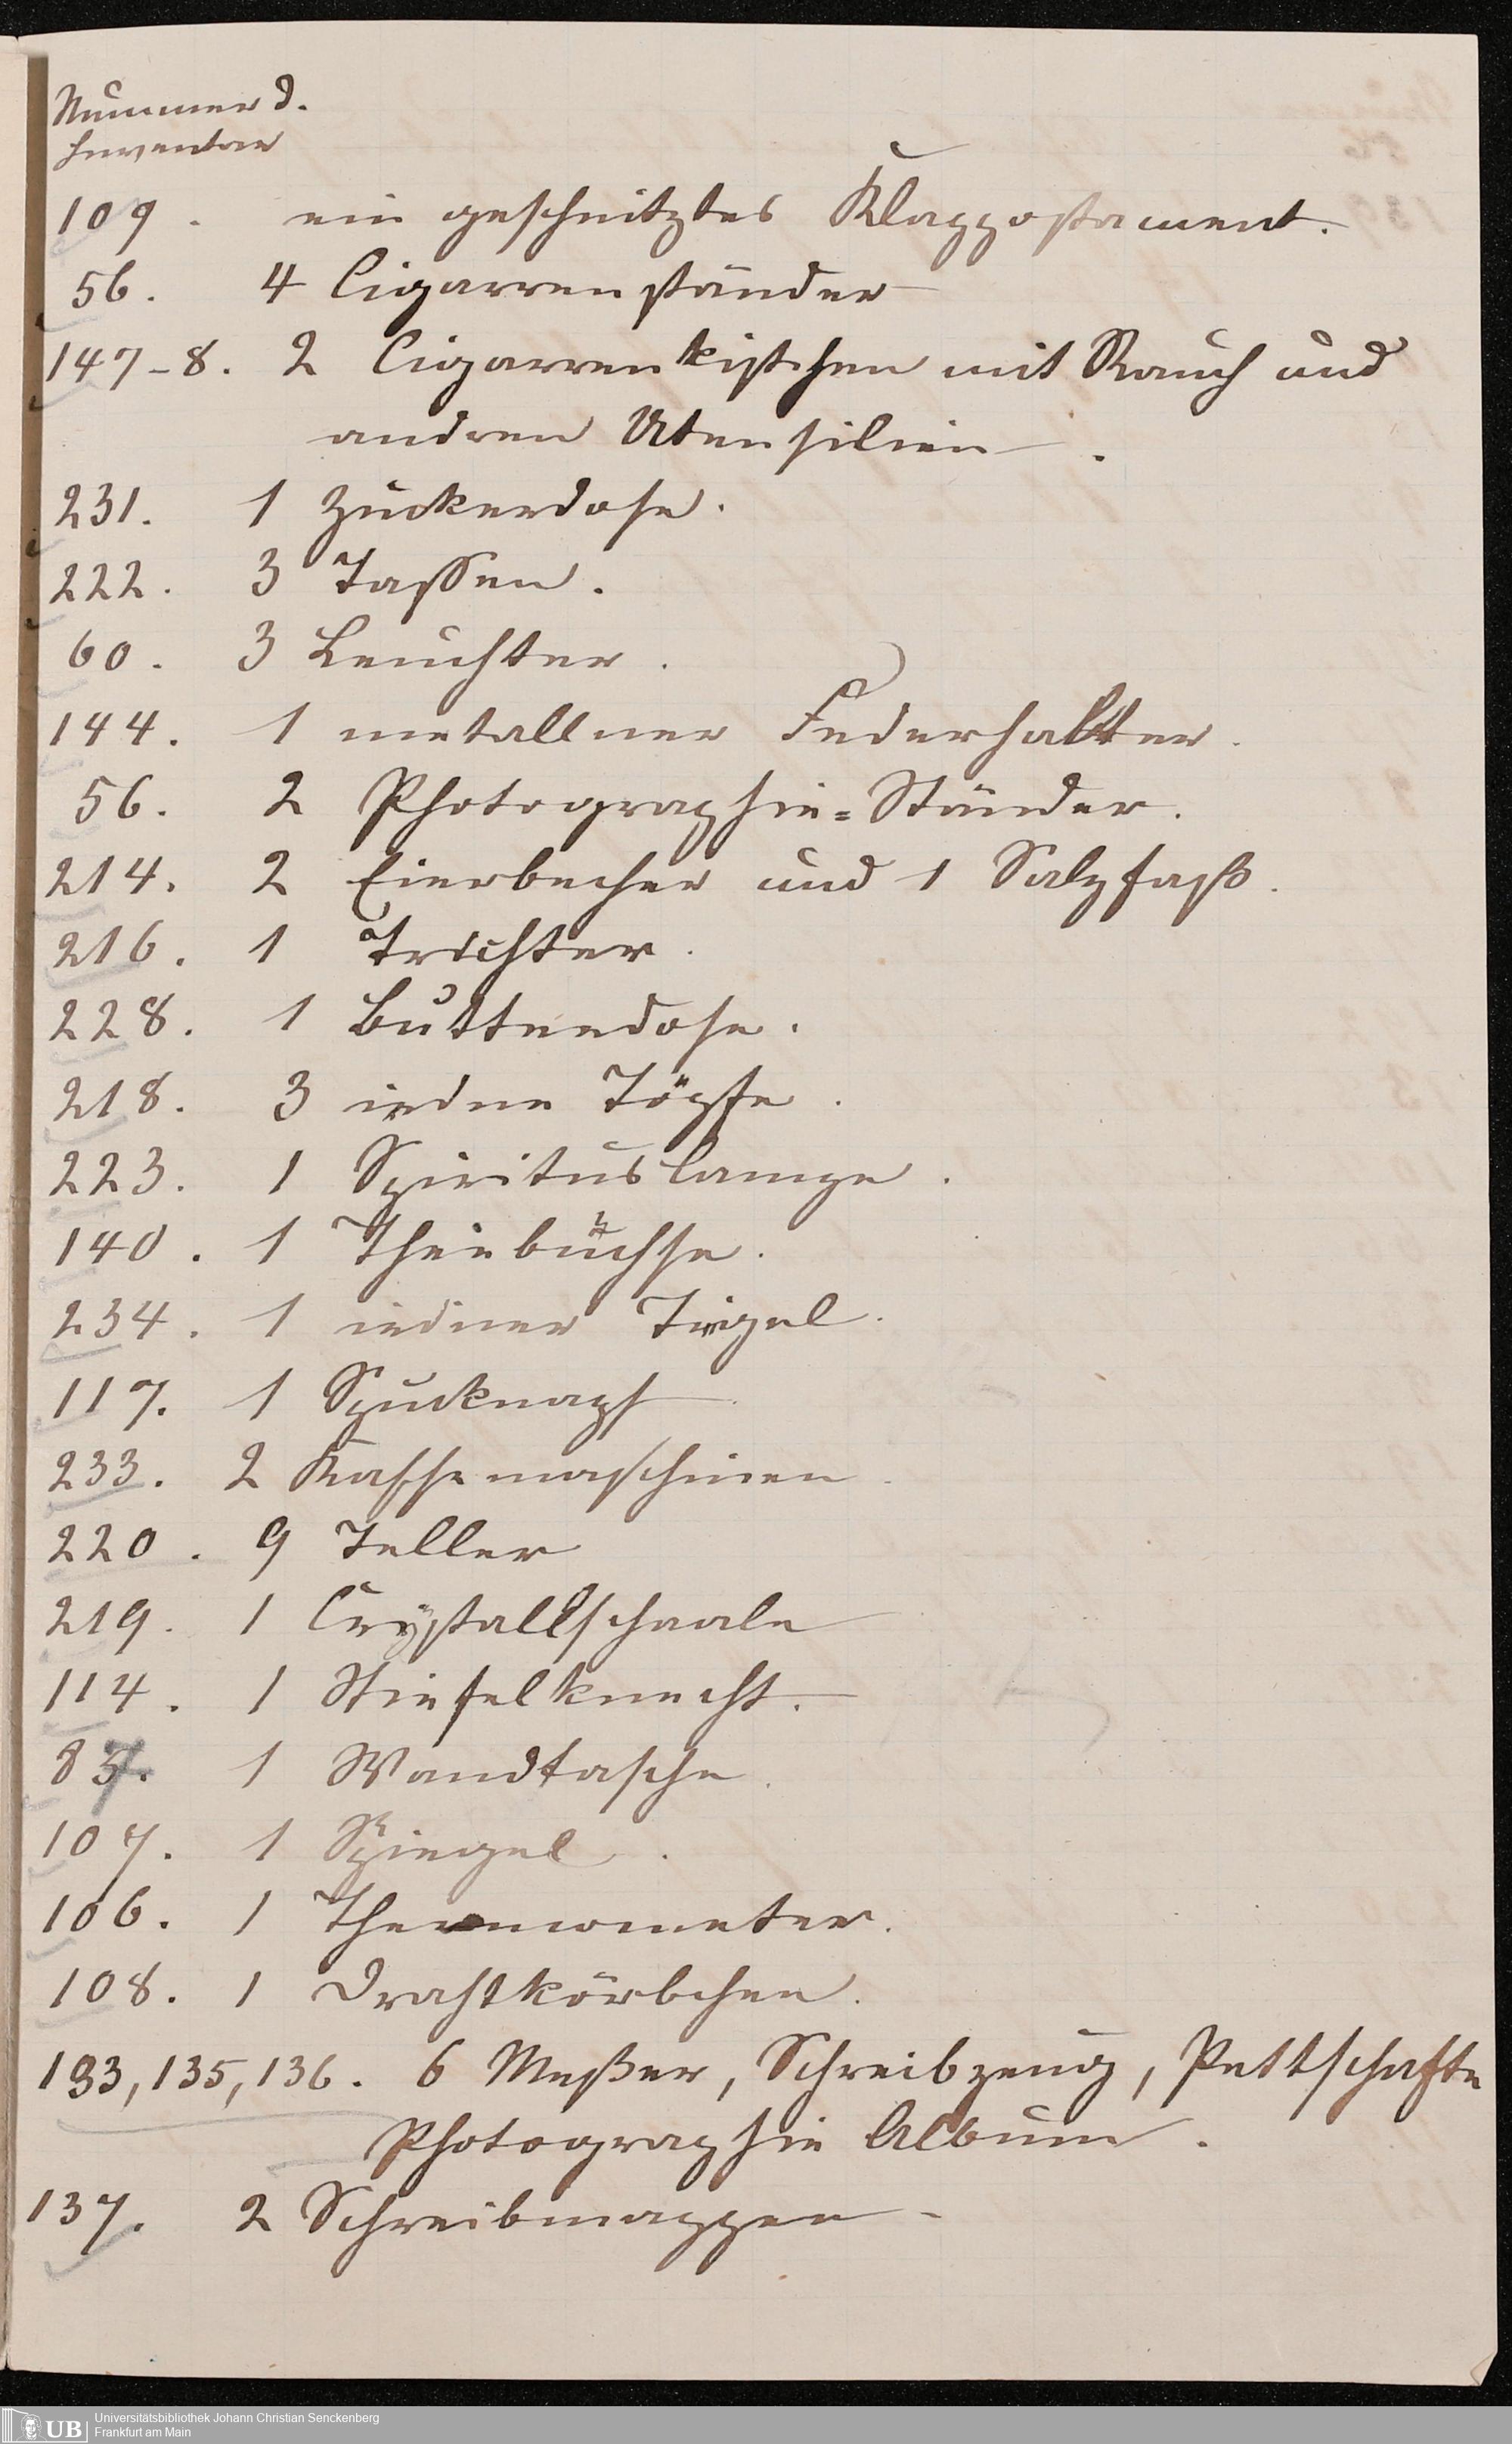 Nummer d.
Inventar
109. ein geschnitztes Klappostament.
56. 4 Cigarrenständer
147-8. 2 Cigarrenkistchen mit Rauch und
andren Utensilien.
231. 1 Zuckerdose.
222. 3 Tassen.
60. 3 Leuchter.
144. 1 metallner Federhalter.
56. 2 Photographie=Ständer.
214. 2 Eierbecher und 1 Salzfaß.
216. 1 Trichter.
228. 1 Butterdose.
218. 3 irdne Töpfe.
223. 1 Spirituslampe.
140. 1 Theebüchse.
234. 1 irdner Tiegel.
117. 1 Spucknapf
233. 2 Kaffemaschinen.
220. 9 Teller
219. 1 Crystallschaale
114. 1 Stiefelknecht.
87. 1 Wandtasche.
107. 1 Spiegel.
106. 1 Thermometer.
108. 1 Drahtkörbchen.
133, 135, 136. 6 Meßer, Schreibzeug, Pettschafte
Photographie Album.
137. 2 Schreibmappen.
UB
Universitätsbibliothek Johann Christian Senckenberg
Frankfurt am Main